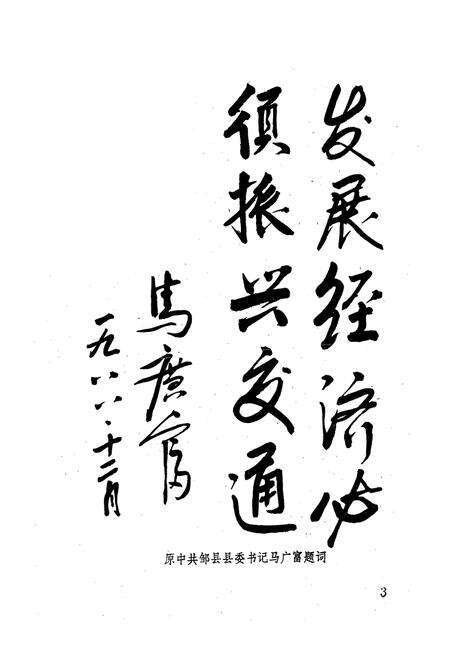 发展经济必
须振兴交通
馬廣富
一九八八·十二月
原中共邹县县委书记马广富题词
3